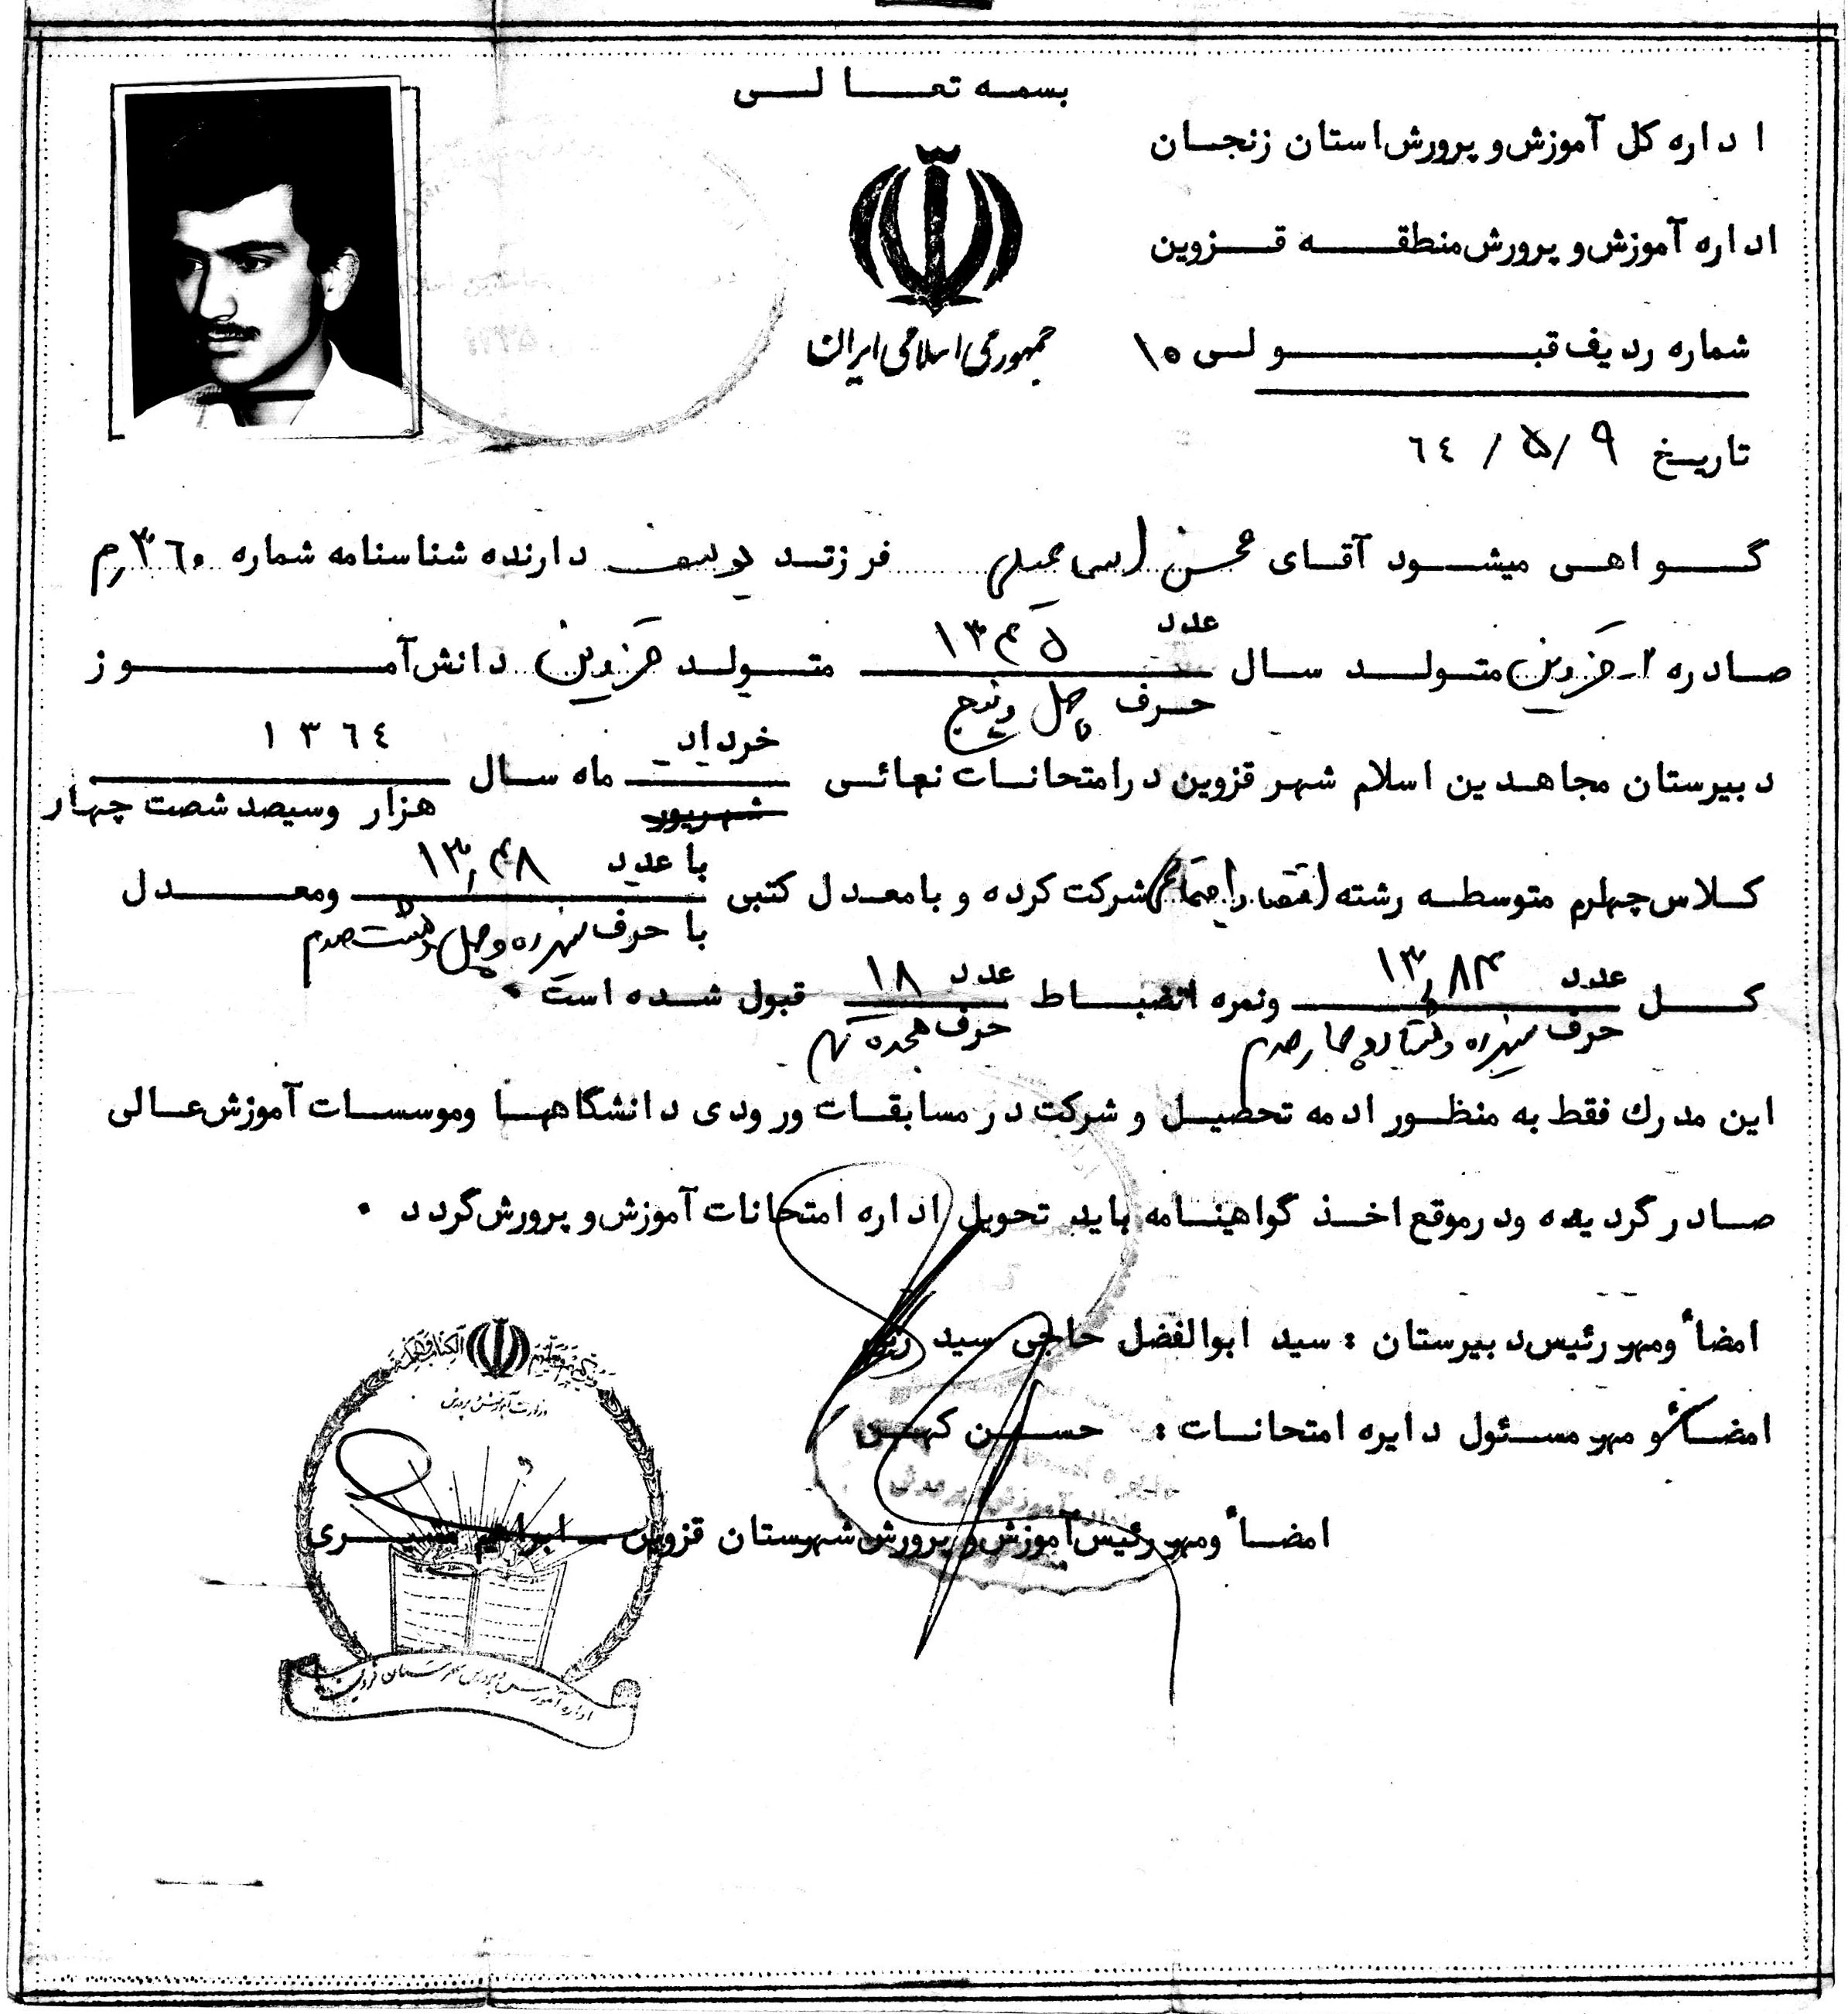 بسمه تعالی
اداره کل آموزش و پرورش استان زنجان
اداره آموزش و پرورش منطقه قزوین
جمهوری اسلامی ایران
شماره ردیف قبولی ۱۵
تاریخ ۹ / ۵ / ٦٤
گواهی میشود آقای محسن فرزند یوسف دارنده شناسنامه شماره ۳٦۰
صادره از قزوین متولد سال عدد ۱۳۴۵ متولد قزوین دانش آموز
حرف چهل و پنج
دبیرستان مجاهدین اسلام شهر قزوین در امتحانات نهائی خرداد ماه سال ۱۳٦٤
شهریور هزار و سیصد شصت چهار
کلاس چهارم متوسطه رشته اقتصاد اجتماعی شرکت کرده و با معدل کتبی با عدد ۱۳٫۴۸ ومعدل
با حرف سیزده و چهل و هشت صدم
کل عدد ۱۳٫۸۴ ونمره انضباط عدد ۱۸ قبول شده است .
حرف سیزده و هشتاد و چهار صدم حرف هجده تمام
این مدرك فقط به منظور ادمه تحصیل و شرکت در مسابقات ورودی دانشگاهها وموسسات آموزش عالی
صادر گردیده ودرموقع اخذ گواهینامه باید تحویل اداره امتحانات آموزش و پرورش گردد .
امضاٴ ومهر رئیس دبیرستان : سید ابوالفضل حاجی سید
امضاٴ و مهر مسئول دایره امتحانات : حسن
امضاٴ ومهر رئیس آموزش و پرورش شهرستان قزوین ابراهیم
وزارت آموزش و پرورش
اداره آموزش و پرورش شهرستان قزوین